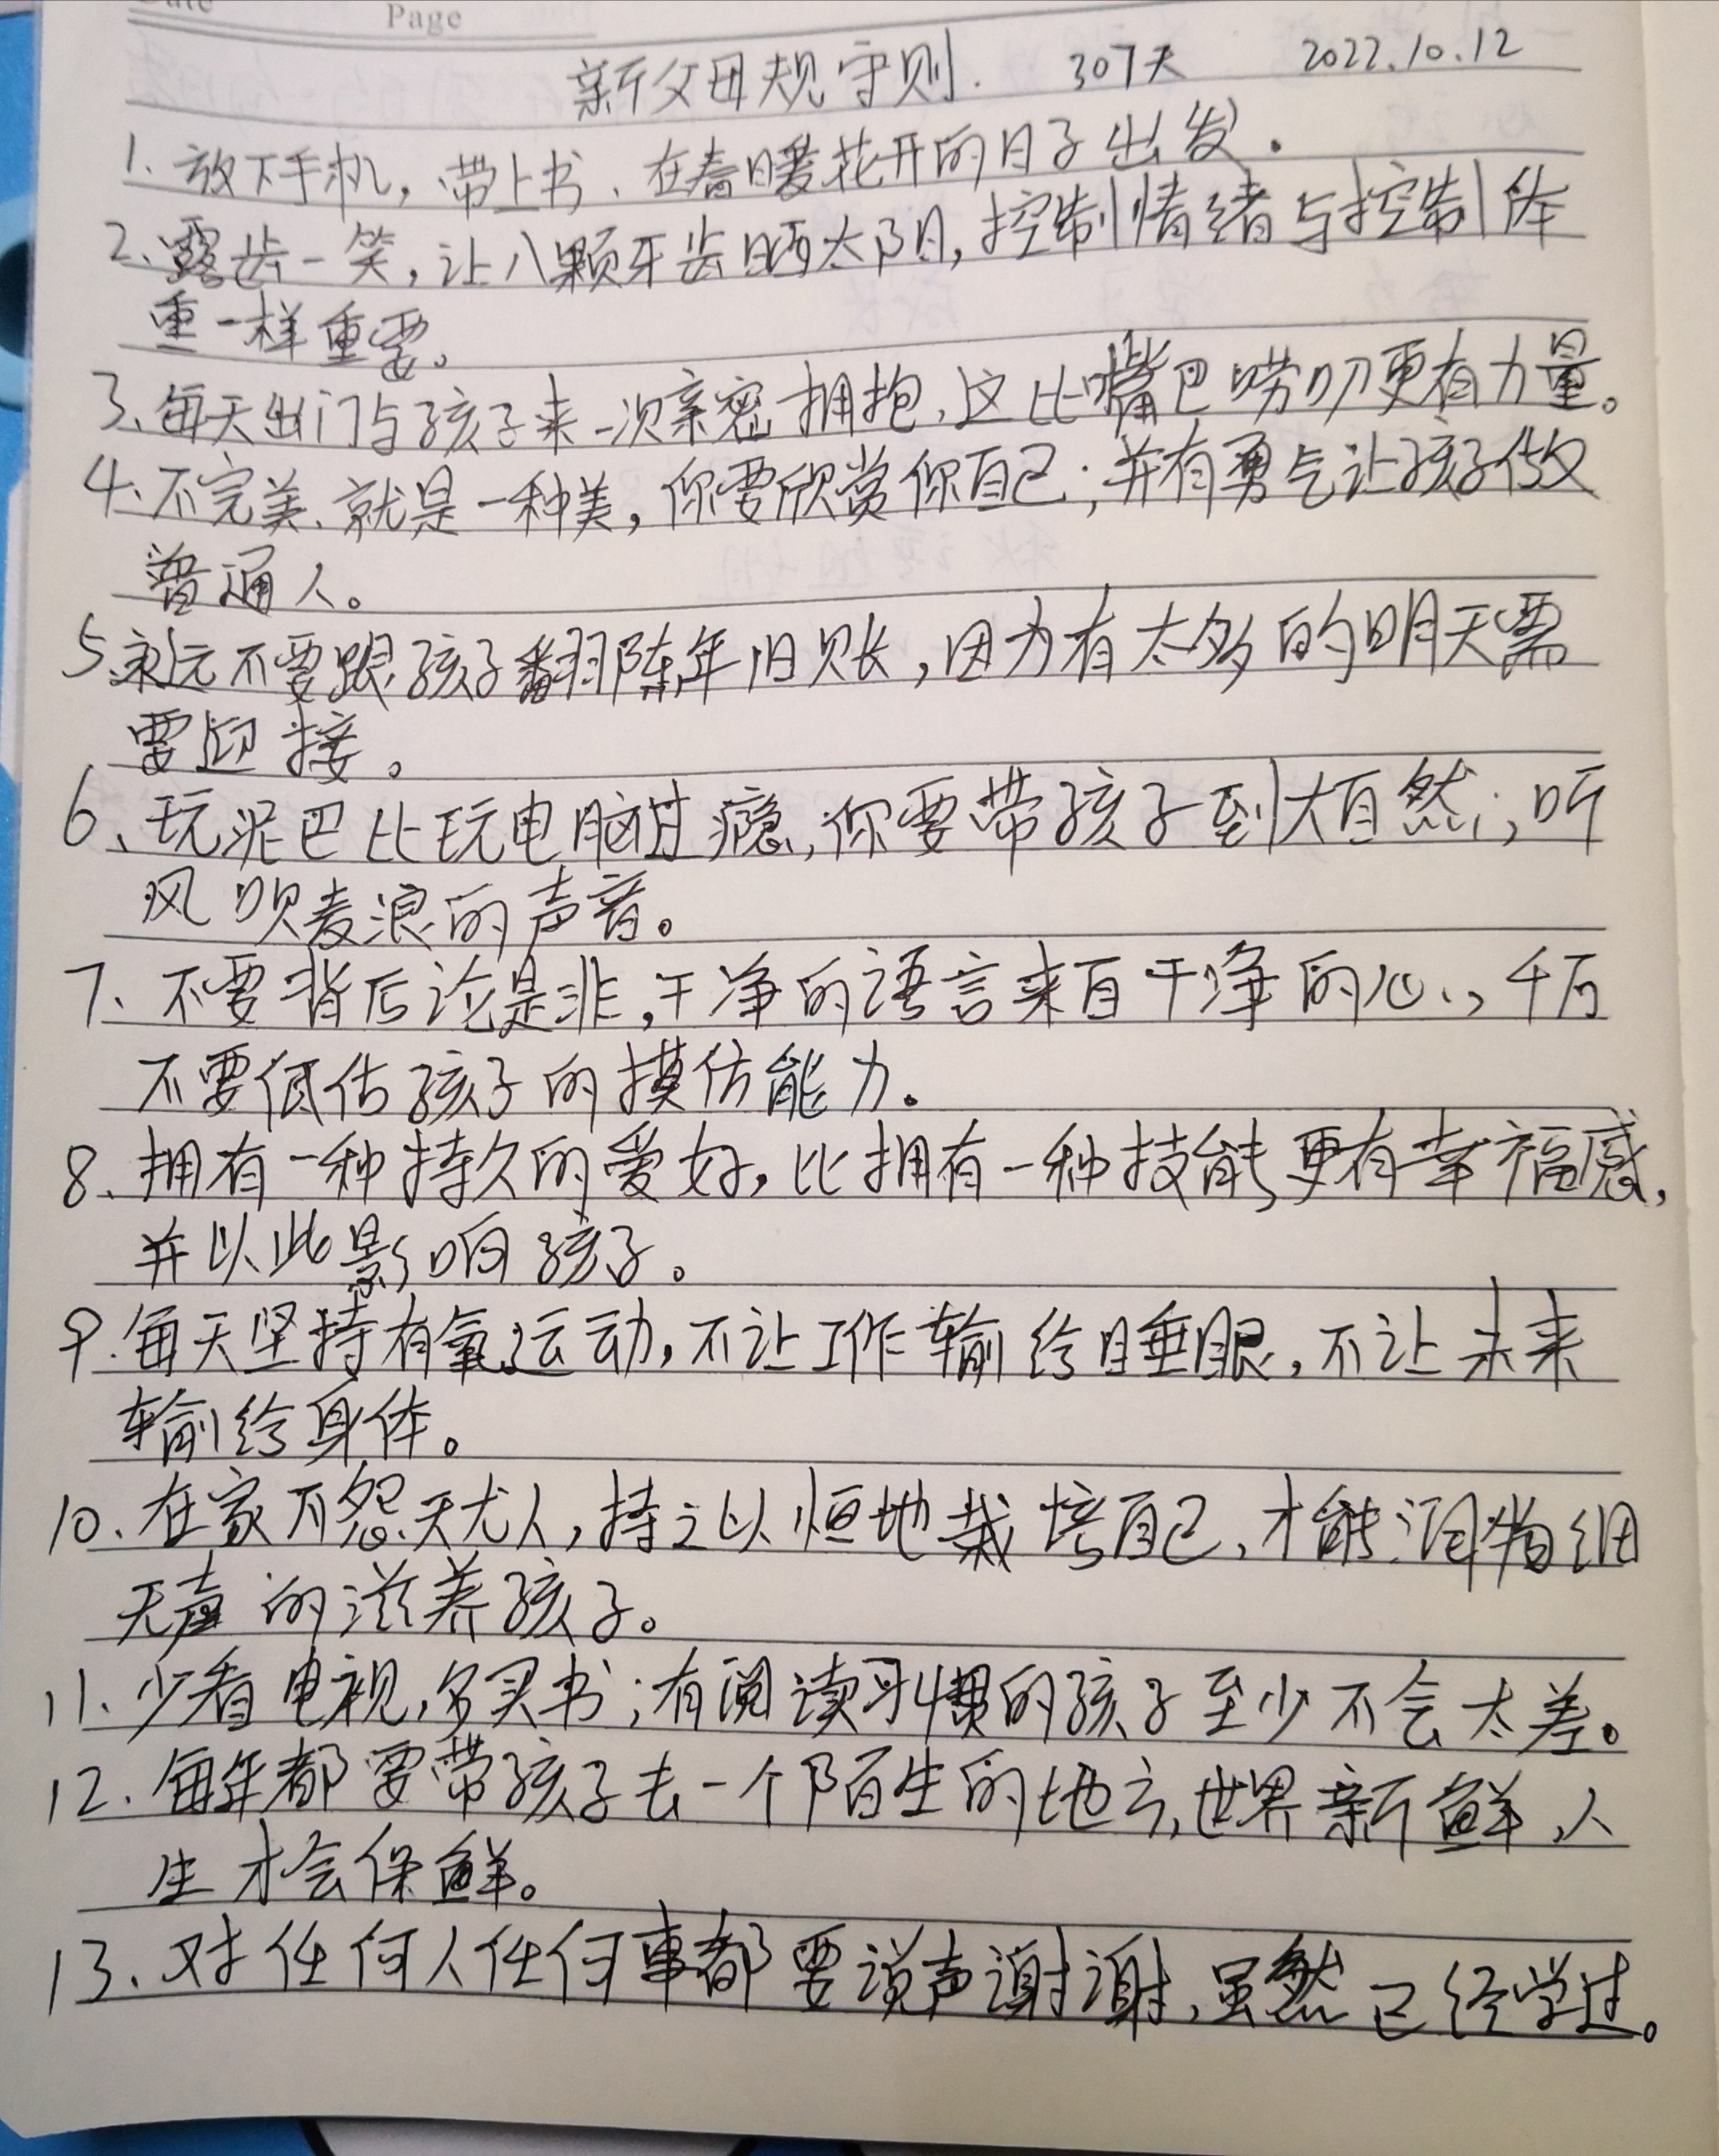 Page
新父母规守则. 307天 2022.10.12
1. 放下手机，带上书、在春暖花开的日子出发。
2、露齿一笑，让八颗牙齿晒太阳，控制情绪与控制体
重一样重要。
3、每天出门与孩子来一次亲密拥抱，这比嘴巴唠叨更有力量。
4、不完美、就是一种美，你要欣赏你自己；并有勇气让孩子做
普通人。
5、永远不要跟孩子翻陈年旧账，因为有太多的明天需
要迎接。
6、玩泥巴比玩电脑过瘾，你要带孩子到大自然；听
风吹麦浪的声音。
7、不要背后论是非，干净的语言来自干净的心，千万
不要低估孩子的摸仿能力。
8、拥有一种持久的爱好，比拥有一种技能更有幸福感，
并以此影响孩子。
9.每天坚持有氧运动，不让工作输给睡眠，不让未来
输给身体。
10、在家不怨天尤人，持之以恒地栽培自己，才能润物细
无声的滋养孩子。
11、少看电视，多买书；有阅读习惯的孩子至少不会太差。
12、每年都要带孩子去一个陌生的地方，世界新鲜，人
生才会保鲜。
13、对任何人任何事都要说声谢谢，虽然已经学过。